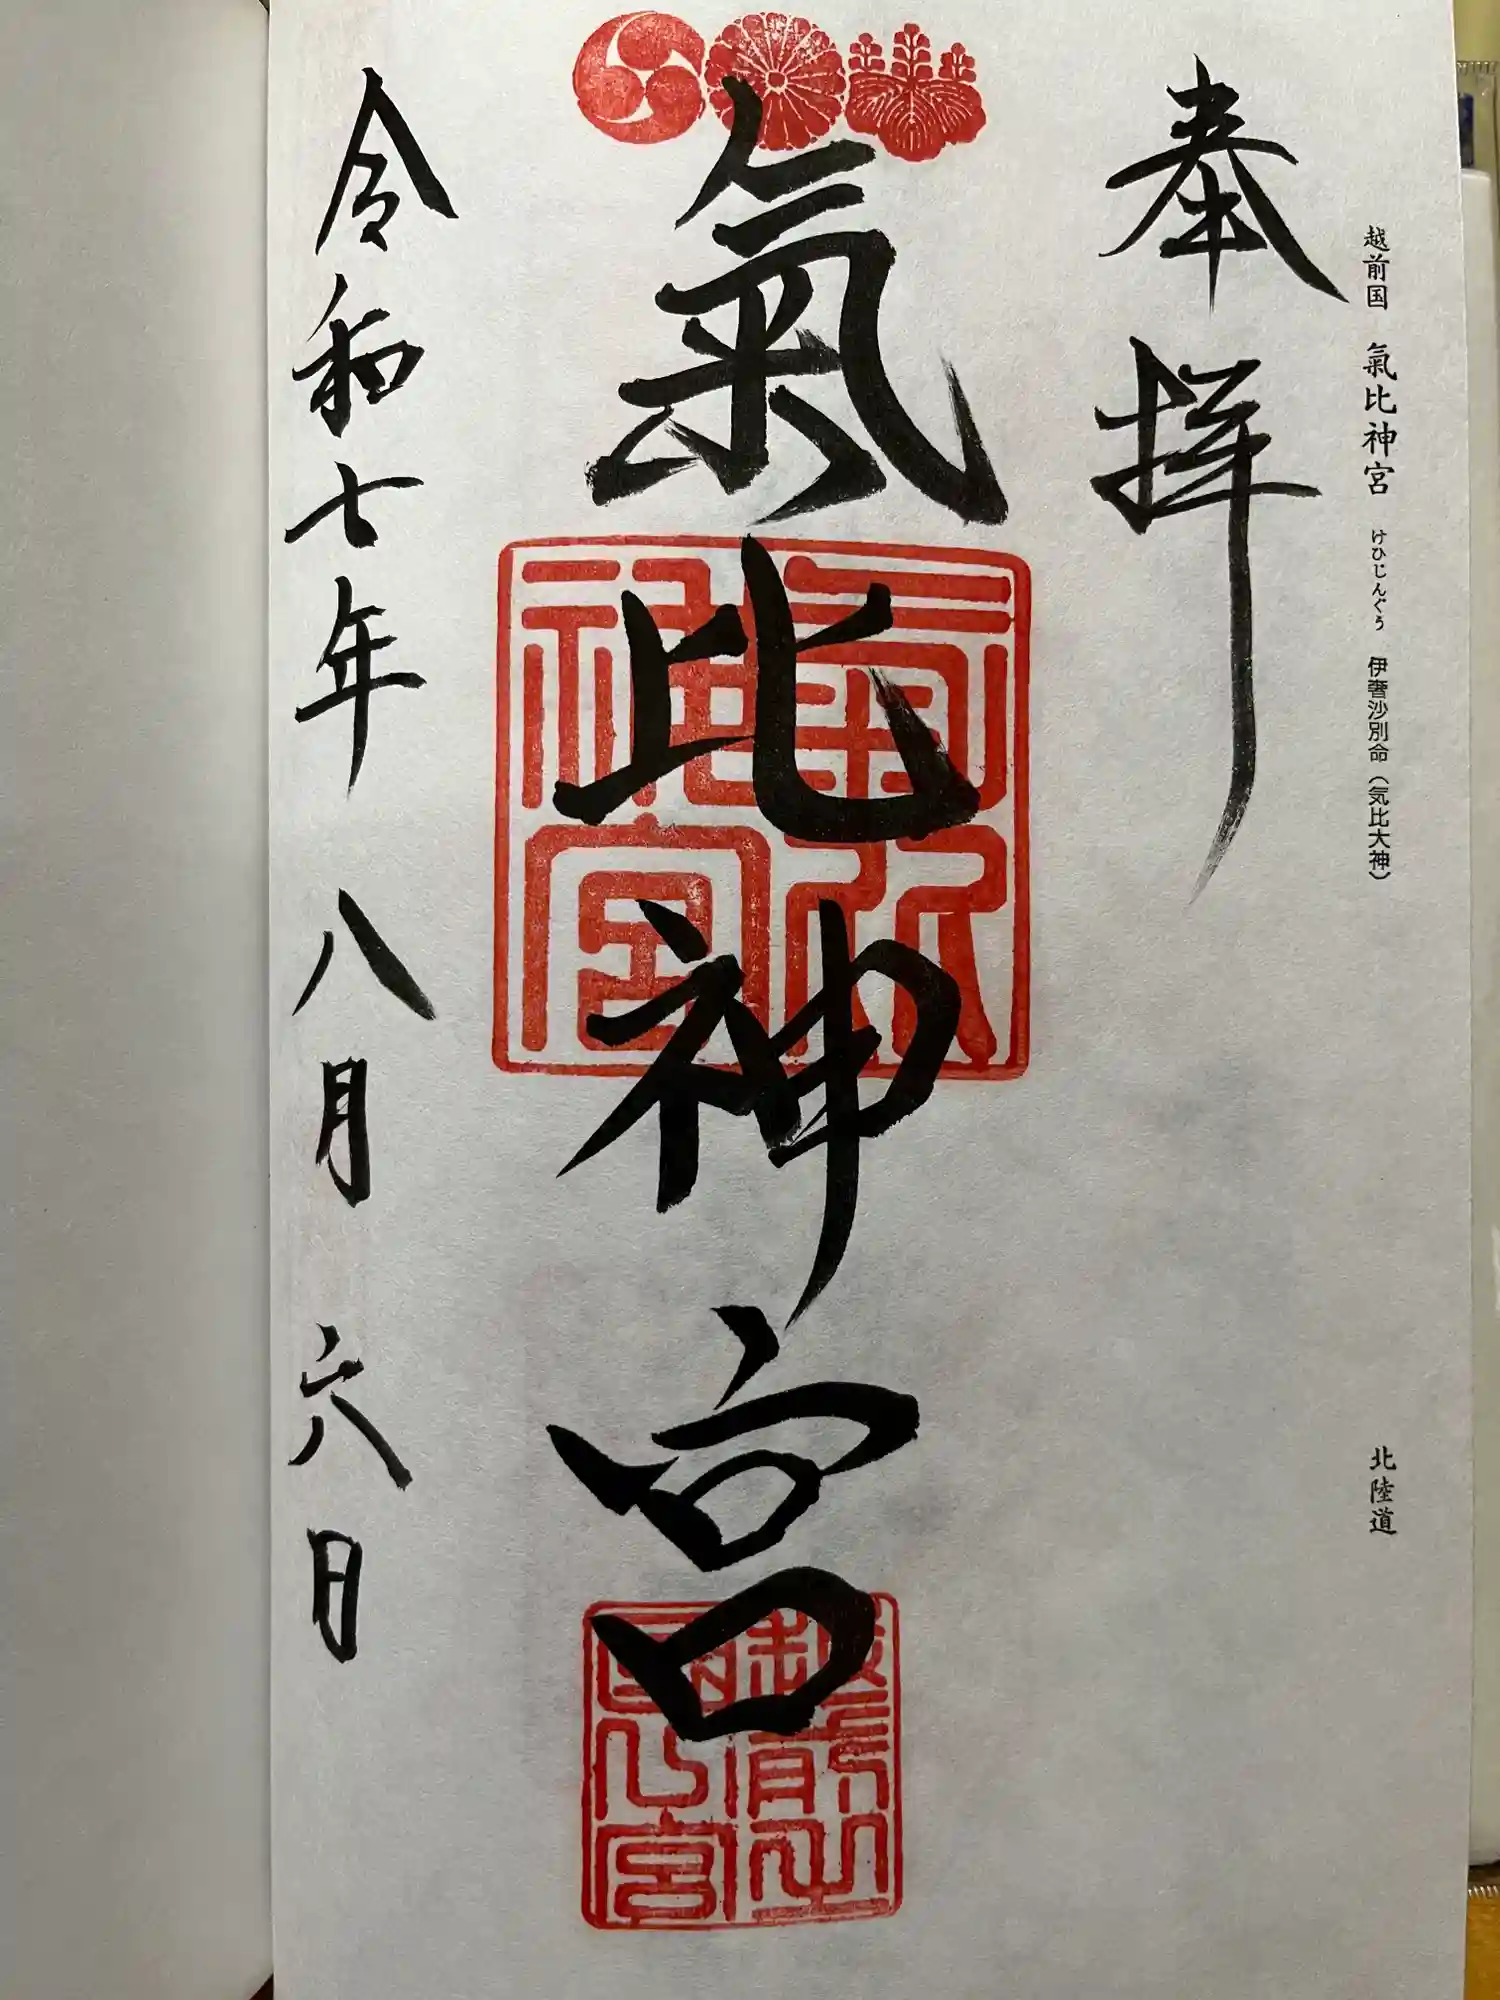 越前国 氣比神宮 けひじんぐう 伊奢沙別命（気比大神） 北陸道
奉拝
氣比神宮
氣比神宮
越前之国一宮
令和七年八月六日